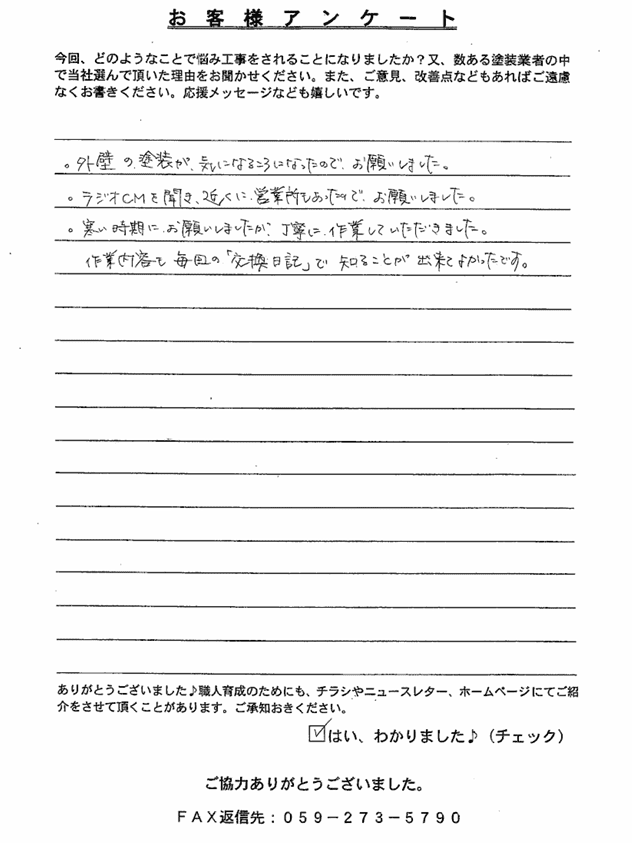 お客様アンケート
今回、どのようなことで悩み工事をされることになりましたか？又、数ある塗装業者の中
で当社選んで頂いた理由をお聞かせください。また、ご意見、改善点などもあればご遠慮
なくお書きください。応援メッセージなども嬉しいです。
。外壁の塗装が、気になるころになったので、お願いしました。
。ラジオCMを聞き、近くに営業所もあったので、お願いしました。
。寒い時期にお願いしましたが、丁寧に作業していただきました。
作業内容も毎回の「交換日記」で知ることが出来てよかったです。
ありがとうございました♪職人育成のためにも、チラシやニュースレター、ホームページにてご紹
介をさせて頂くことがあります。ご承知おきください。
☑はい、わかりました♪（チェック）
ご協力ありがとうございました。
ＦＡＸ返信先：０５９－２７３－５７９０